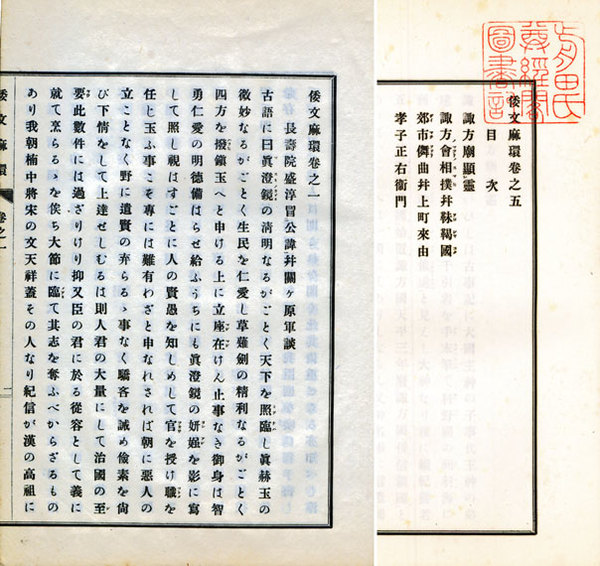 前田氏
尊經閣
圖書記
倭文麻環卷之五
目次
諏方廟顯靈
諏方會相撲幷靺鞨國
郊市曲幷上町來由
孝子正右衞門
倭文麻環卷之一
長壽院盛淳冒公諱幷關ヶ原軍談
古語に曰眞澄鏡の淸明なるがごとく天下を照臨し眞赫玉の
微妙なるがごとく生民を仁愛し草薙劍の精利なるがごとく
四方を撥鎭玉へと申ける上に立座在けん止事なき御身は智
勇仁愛の明德備はらせ給ふうちにも眞澄鏡の妍媸を影に寫
して照し視はすごとに人の賢愚を知しめして官を授け職を
任じ玉ふ事こそ專には難有わざと申なれされば朝に惡人の
立ことなく野に遺賢の弃らるゝ事なく驕客を誡め儉素を尙
び下情をして上達せしむるは則人君の大量にして治國の至
要此數件には過ざりけり抑又臣の君に於る從容として義に
就て烹らるゝを俟ち大節に臨て其志を奪ふべからざるもの
あり我朝楠中將宋の文天祥蓋その人なり紀信が漢の高祖に
倭文麻環
卷之一
一